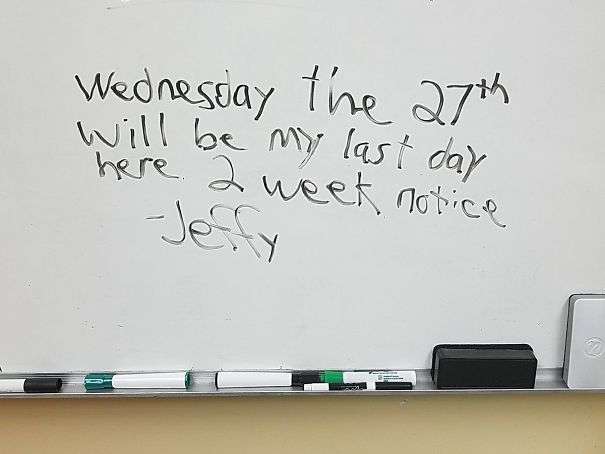 Wednesday the 27th
will be my last day
here. 2 week notice
-Jeffy